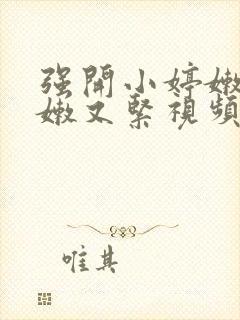 强開小婷嫩
嫩又緊視頻
唯其